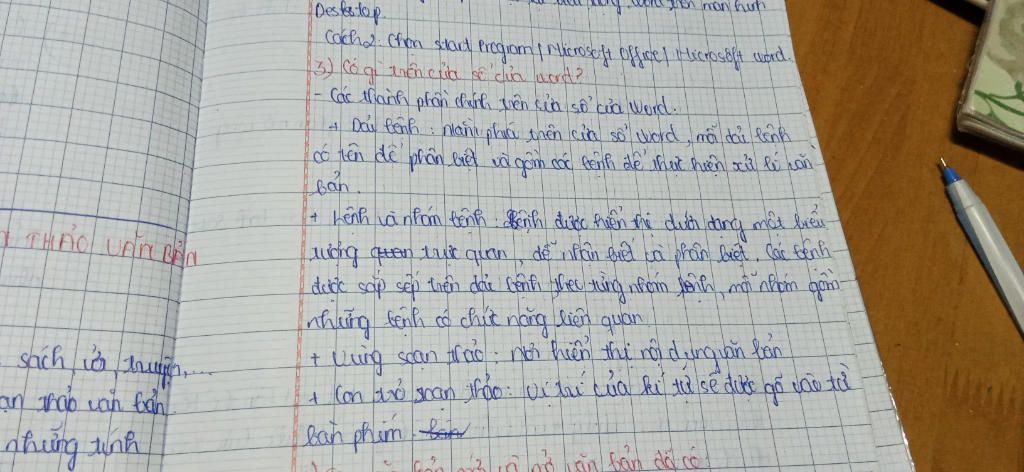 màn hình
Desktop
Cách 2. Chọn start Program / Microsoft Office / Microsoft word.
3) Có gì trên cửa sổ của word?
- Các thành phần chính trên cửa sổ của Word.
+ Dải lệnh: phía trên cửa sổ word, mỗi dải lệnh
có tên để phân biệt và gồm các lệnh để thực hiện xử lí văn
bản.
+ Lệnh và nhóm lệnh: lệnh được hiển thị dưới dạng một biểu
tượng trực quan, dễ nhận biết và phân biệt. Các lệnh
được sắp sếp trên dải lệnh theo từng nhóm lệnh, mỗi nhóm gồm
những lệnh có chức năng liên quan.
+ Vùng soạn thảo: nơi hiển thị nội dung văn bản
+ Con trỏ soạn thảo: vị trí của kí tự sẽ được gõ vào từ
bàn phím.
văn bản đã có
THẢO VĂN BẢN
sách, vở, truyện,....
ạn thảo văn bản
những tính